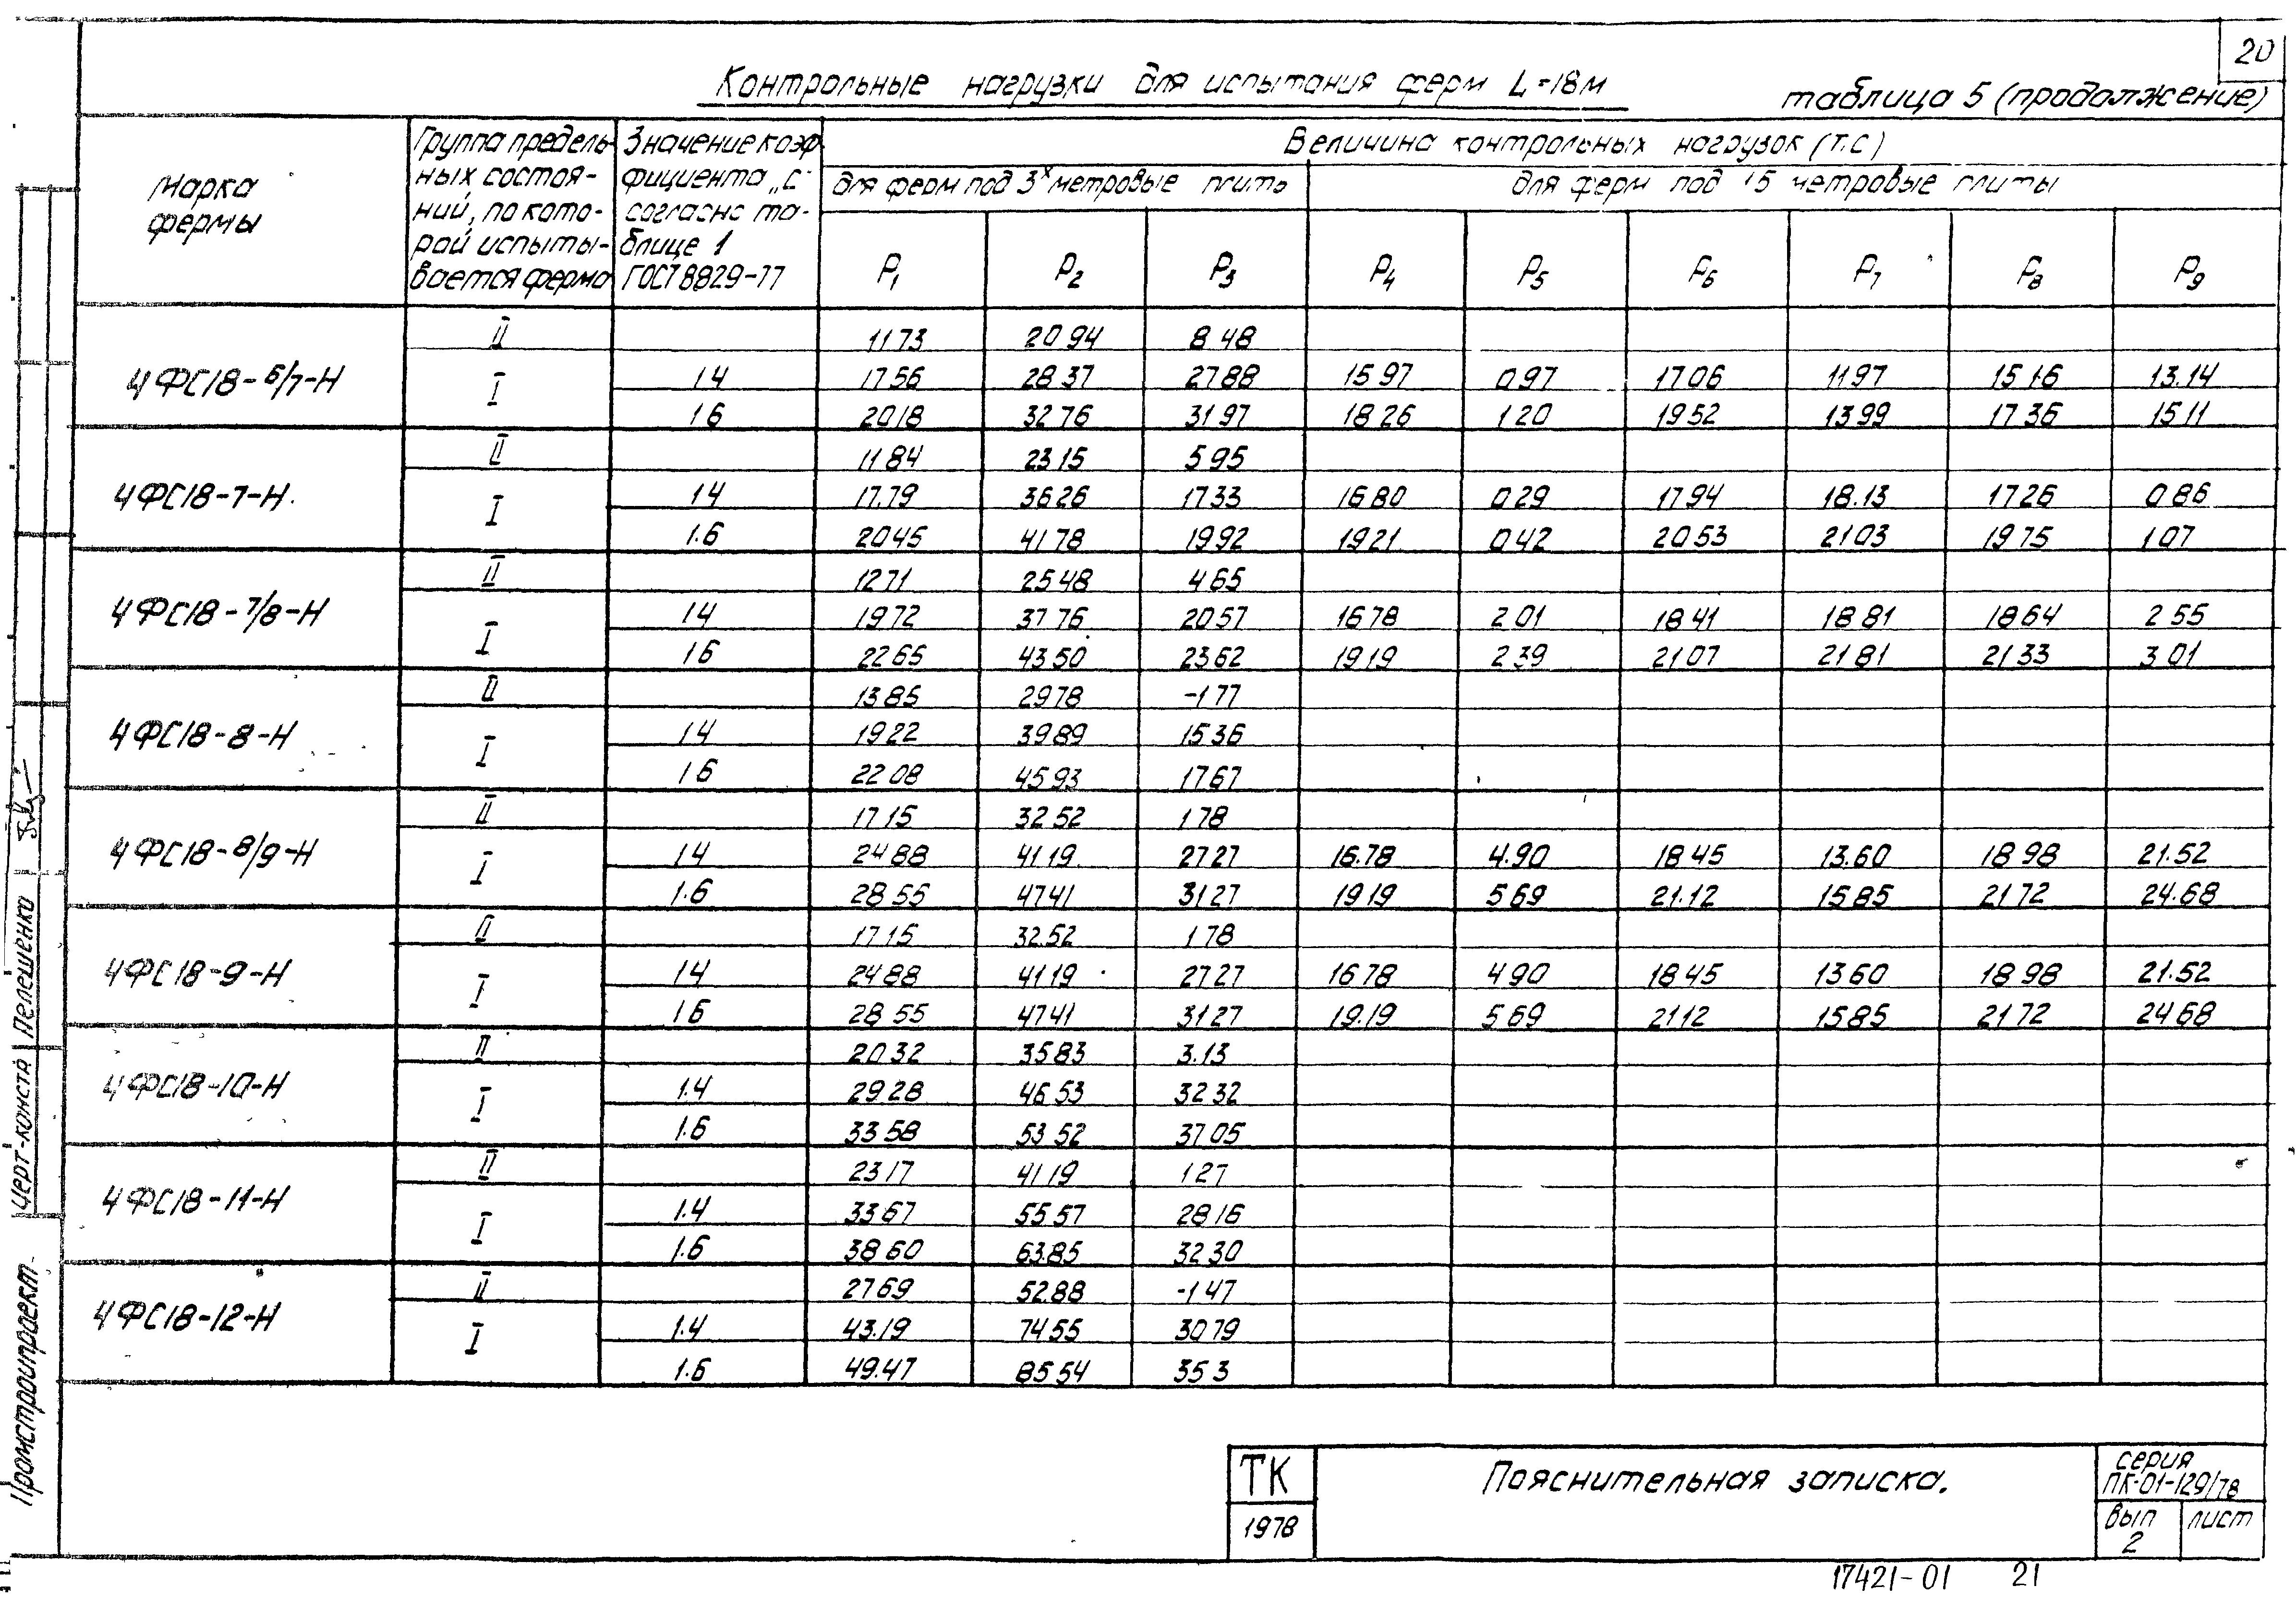 20
Контрольные нагрузки для испытания ферм L=18м
таблица 5 (продолжение)
Марка фермы
Группа предельных состояний, по которой испытывается ферма
Значение коэффициента „с" согласно таблице 1 ГОСТ 8829-77
Величина контрольных нагрузок (т.с)
для ферм под 3х метровые плиты
для ферм под 1.5 метровые плиты
P1 P2 P3 P4 P5 P6 P7 P8 P9
4ФС18-6/7-Н
II 11.73 20.94 8.48
I 1.4 17.56 28.37 27.88 15.97 0.97 17.06 11.97 15.16 13.14
1.6 20.18 32.76 31.97 18.26 1.20 19.52 13.99 17.36 15.11
4ФС18-7-Н
II 11.84 23.15 5.95
I 1.4 17.79 36.26 17.33 16.80 0.29 17.94 18.13 17.26 0.86
1.6 20.45 41.78 19.92 19.21 0.42 20.53 21.03 19.75 1.07
4ФС18-7/8-Н
II 12.71 25.48 4.65
I 1.4 19.72 37.76 20.57 16.78 2.01 18.41 18.81 18.64 2.55
1.6 22.65 43.50 23.62 19.19 2.39 21.07 21.81 21.33 3.01
4ФС18-8-Н
II 13.85 29.78 -1.77
I 1.4 19.22 39.89 15.36
1.6 22.08 45.93 17.67
4ФС18-8/9-Н
II 17.15 32.52 1.78
I 1.4 24.88 41.19 27.27 16.78 4.90 18.45 13.60 18.98 21.52
1.6 28.55 47.41 31.27 19.19 5.69 21.12 15.85 21.72 24.68
4ФС18-9-Н
II 17.15 32.52 1.78
I 1.4 24.88 41.19 27.27 16.78 4.90 18.45 13.60 18.98 21.52
1.6 28.55 47.41 31.27 19.19 5.69 21.12 15.85 21.72 24.68
4ФС18-10-Н
II 20.32 35.83 3.13
I 1.4 29.28 46.53 32.32
1.6 33.58 53.52 37.05
4ФС18-11-Н
II 23.17 41.19 1.27
I 1.4 33.67 55.57 28.16
1.6 38.60 63.85 32.30
4ФС18-12-Н
II 27.69 52.88 -1.47
I 1.4 43.19 74.55 30.79
1.6 49.47 85.54 35.3
Черт-конста Пелешенко
Промстройпроект
ТК
1978
Пояснительная записка.
серия
ПК-01-129/78
вып 2
лист
17421-01 21